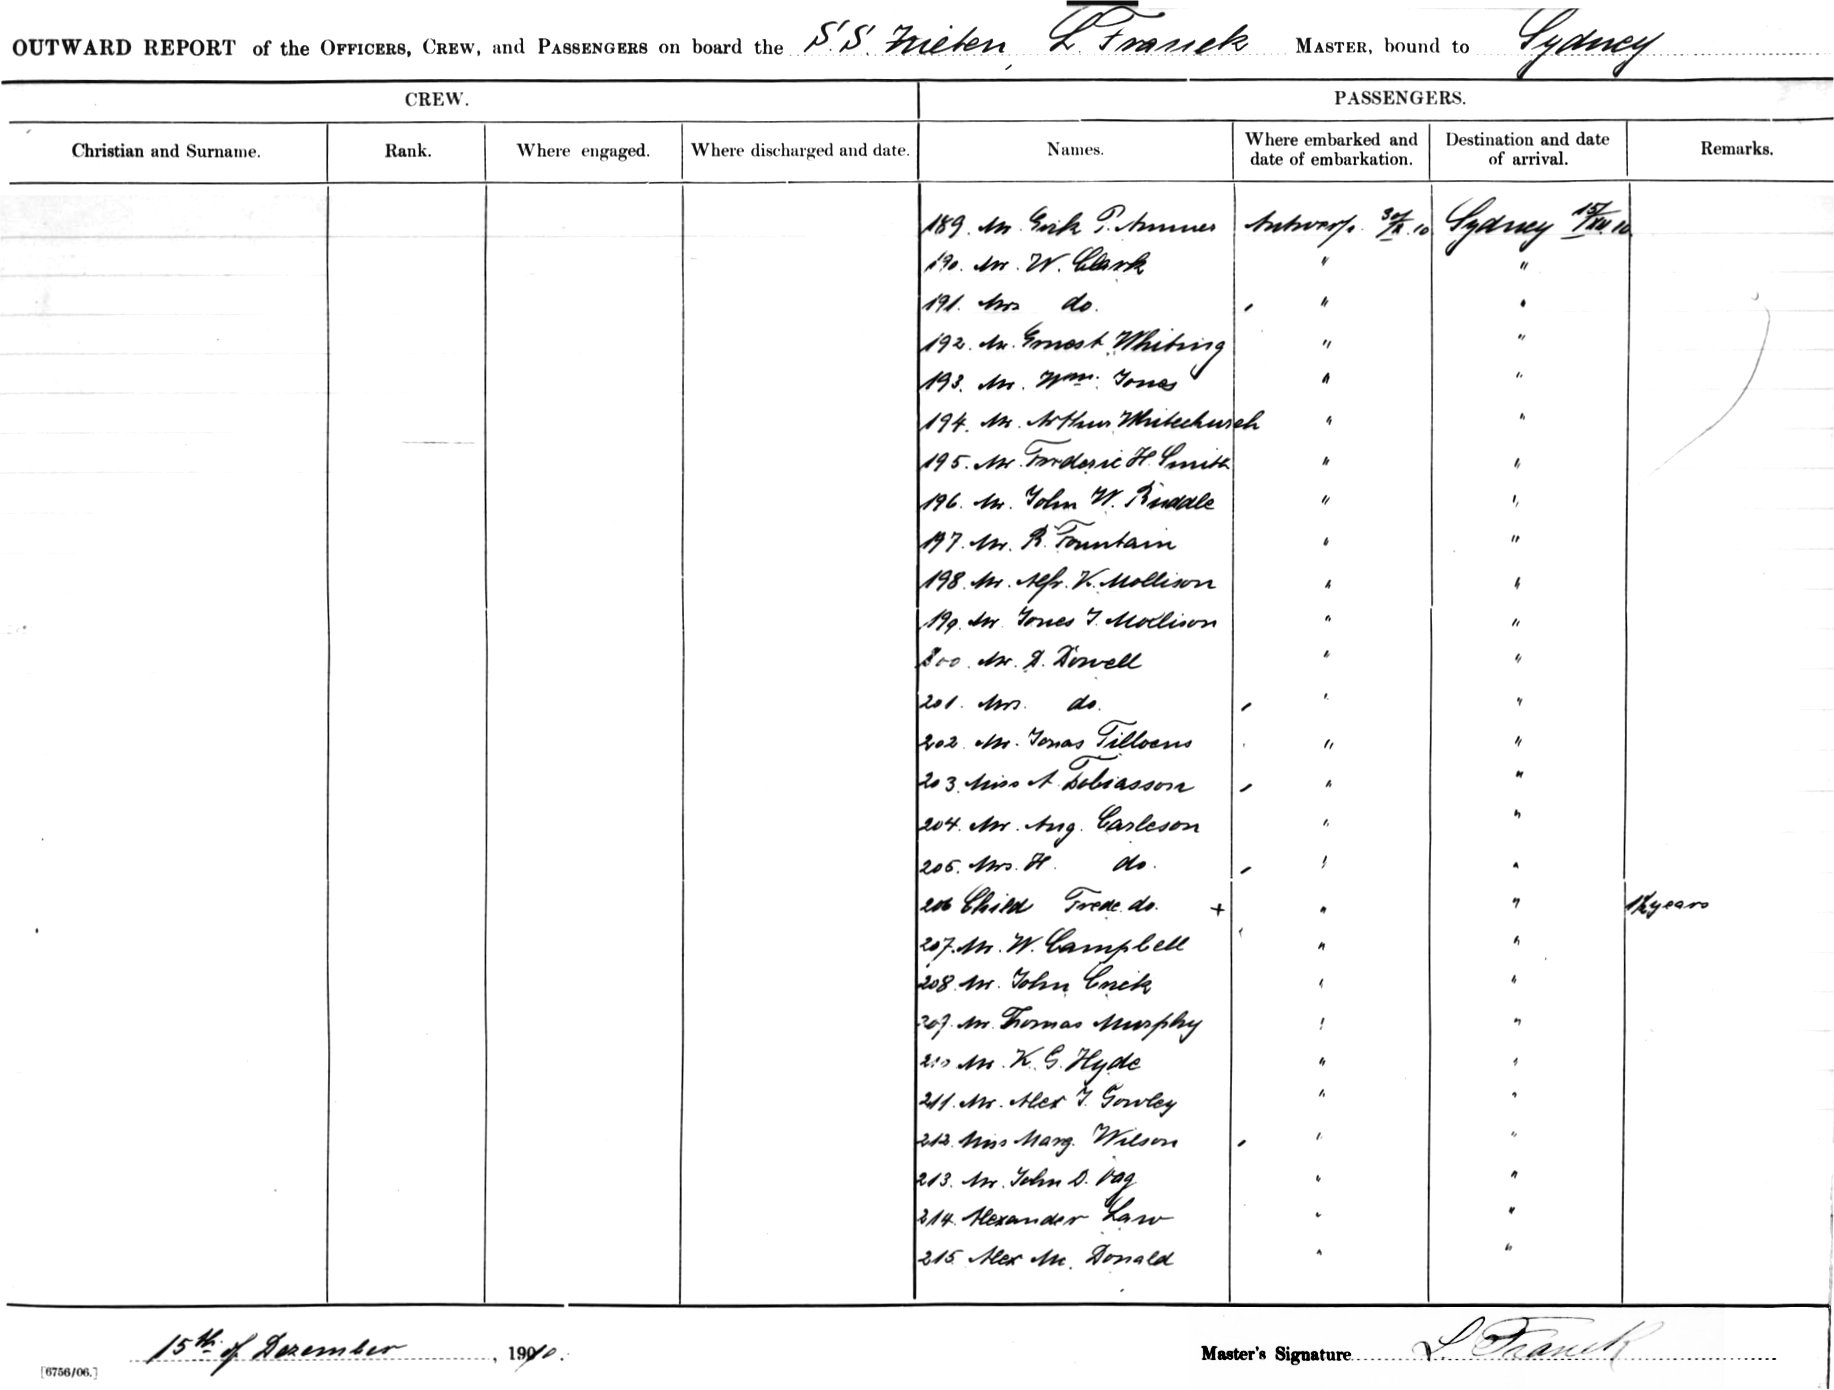 OUTWARD REPORT of the OFFICERS, CREW, and PASSENGERS on board the S.S. Zieten, L. Franck MASTER, bound to Sydney
CREW. PASSENGERS.
Christian and Surname. Rank. Where engaged. Where discharged and date. Names. Where embarked and date of embarkation. Destination and date of arrival. Remarks.
189. Mr. Erik P. Antwerp. Sydney 15/XII.10
190. Mr. W. Clark " "
191. Mrs do. " "
192. Mr. Ernest Whiting " "
193. Mr. Wm. Jones " "
194. Mr. Arthur Whitechurch " "
195. Mr. Frederic H. Smith " "
196. Mr. John W. Riddle " "
197. Mr. R. Fountain " "
198. Mr. Alfr. V. Mollison " "
199. Mr. Jones J. Mollison " "
200. Mr. D. Dowell " "
201. Mrs. do. " "
202. Mr. Jonas Tilloens " "
203. Miss A. Tobiasson " "
204. Mr. Aug. Carleson " "
205. Mrs. H. do. " "
206 Child Frede. do. + " " 1½ years
207. Mr. W. Campbell " "
208. Mr. John Crick " "
209. Mr. Thomas Murphy " "
210 Mr. K. G. Hyde " "
211. Mr. Alex J. Gowley " "
212. Miss Marg. Wilson " "
213. Mr. John D. " "
214. Alexander Law " "
215. Alex Mc. Donald " "
15th of Dezember, 1910.
Master's Signature L. Franck
[6756/06.]